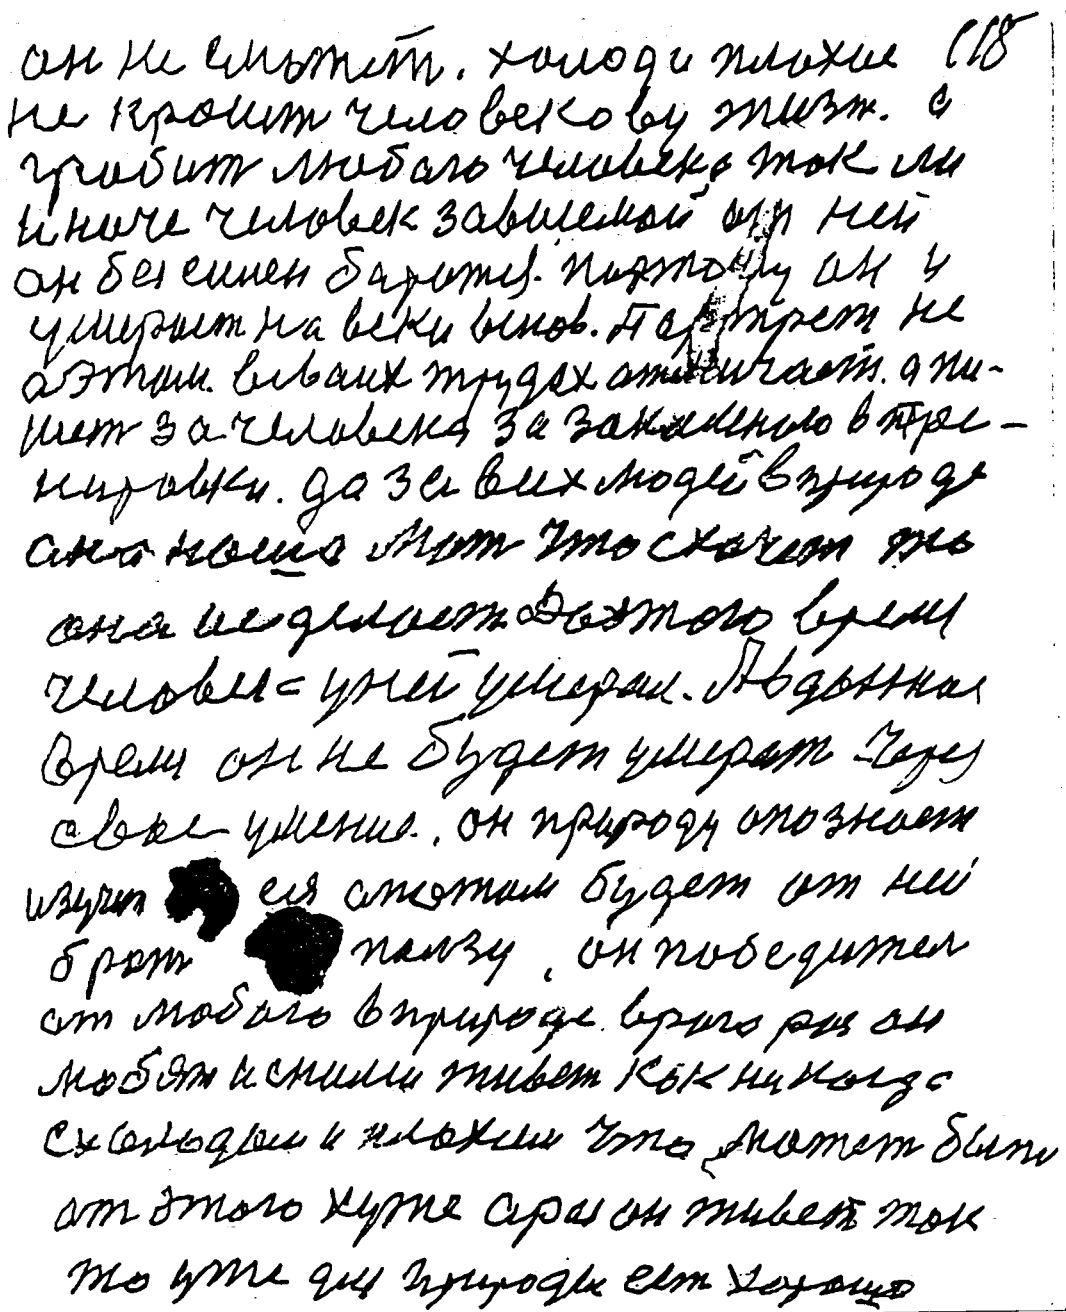 он не сможет. холод и плохие 118
не кроит человекову жизн. а
гробит любого человека так ли
иначе человек зависемой от ней
он бессилен баротся. поэтому он и
умирает на веки веков. Парфирет не
о этом. в своих трудах отмечает. а пи-
шет за человека за закаленого в тре-
нировки. да за всех людей в природе
она наша Мат что схочет то
она и сделает До этого время
человек у ней умерал. А в данная
время он не будет умерат Через
свое умение. он природу опознает
изучит ея а потом будет от ней
брат ползу, он победител
от любого в природе врага раз он
любят и с ними живет как никогда
с холодом и плохим Что может быть
от этого хуже а раз он живет так
то уже для природы ест хорошо